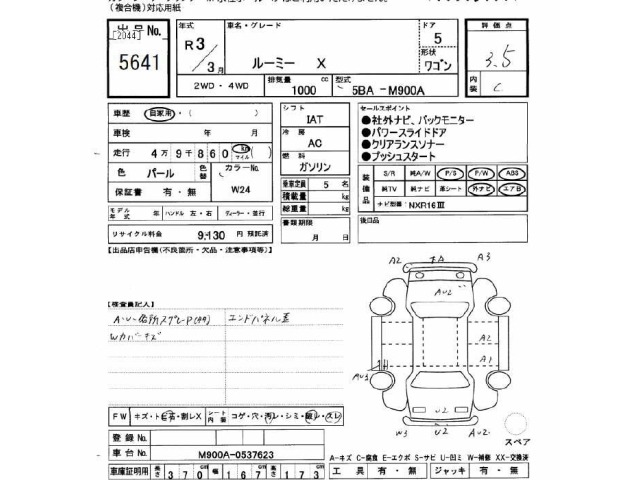 (複合機)対応用紙
出品No. [2044] 5641
年式 R3/3月
車名・グレード ルーミー X
ドア 5
形状 ワゴン
2WD・4WD
排気量 1000 cc
型式 5BA-M900A
評価点 3.5
内装 C
車歴 自家用・( )
車検 年 月
走行 4万9千860 km(マイル)
色 パール 色替 カラーNo. W24
保証書 有・無
モデル年式 年 ハンドル 左・右 ディーラー・並行
リサイクル料金 9,130 円 預託済
シフト IAT
冷房 AC
燃料 ガソリン
乗車定員 5 名
積載量 kg
総重量 kg
書類期限 月 日
セールスポイント
●社外ナビ、バックモニター
●パワースライドドア
●クリアランスソナー
●プッシュスタート
装備品 S/R 純A/W P/S P/W ABS
純TV 純ナビ 革シート 外ナビ エアB
ナビ型番: NXR16Ⅲ
後日品
【出品店申告欄(不良箇所・欠品・注意事項等)】
【検査員記入】
エンドパネル歪
Wカバーキズ
A2 A3
AU2
A2
A1
AU3
W3 U2 AU2
スペア
FW キズ・ト石・割レX シート内装 コゲ・穴・汚レ・シミ・破レ・スレ
登録No.
車台No. M900A-0537623
A-キズ C-腐食 E-エクボ S-サビ U-凹ミ W-補修 XX-交換済
車庫証明用 長さ 370 cm 幅 167 cm 高さ 173 cm
工具 有・無 ジャッキ 有・無